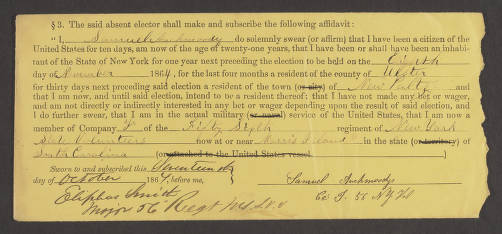 § 3. The said absent elector shall make and subscribe the following affidavit:
"I, Samuel Auchmoody do solemnly swear (or affirm) that I have been a citizen of the
United States for ten days, am now of the age of twenty-one years, that I have been or shall have been an inhabi-
tant of the State of New York for one year next preceding the election to be held on the Eighth
day of November 1864, for the last four months a resident of the county of Ulster
for thirty days next preceding said election a resident of the town (or city) of New Paltz and
that I am now, and until said election, intend to be a resident thereof: that I have not made any bet or wager,
and am not directly or indirectly interested in any bet or wager depending upon the result of said election, and
I do further swear, that I am in the actual military (or naval) service of the United States, that I am now a
member of Company of the Fifty Sixth regiment of New York
State Volunteers now at or near Morris Island in the state (or territory) of
South Carolina (or attached to the United States vessel )
Sworn to and subscribed this Seventeenth
day of October 1864, before me,
Samuel Auchmoody
Eliphas Smith
Co 56 N.Y.
Major 56 Regt